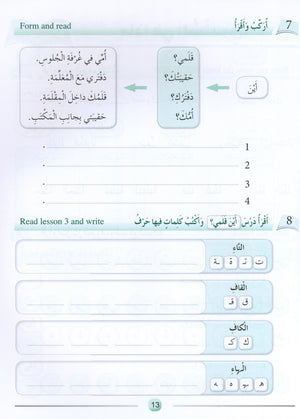 7 أُرَكِّبُ وَأَقْرَأُ Form and read
أَيْنَ
قَلَمي؟
حَقيبَتُكَ؟
دَفْتَرُكَ؟
أُمُّكَ؟
أُمّي في غُرْفَةِ الْجُلوسِ.
دَفْتَري مَعَ الْمُعَلِّمَةِ.
قَلَمُكَ داخِلَ الْمِقْلَمَةِ.
حَقيبَتي بِجانِبِ الْمَكْتَبِ.
1
2
3
4
8 أَقْرَأُ دَرْسَ (أَيْنَ قَلَمي؟) وَأَكْتُبُ كَلِماتٍ فيها حَرْفُ Read lesson 3 and write
التّاءِ
ت ـتـ ة ـة
القافِ
ق قـ
الكافِ
ك كـ
الهاءِ
هـ ـهـ ـه ه
13